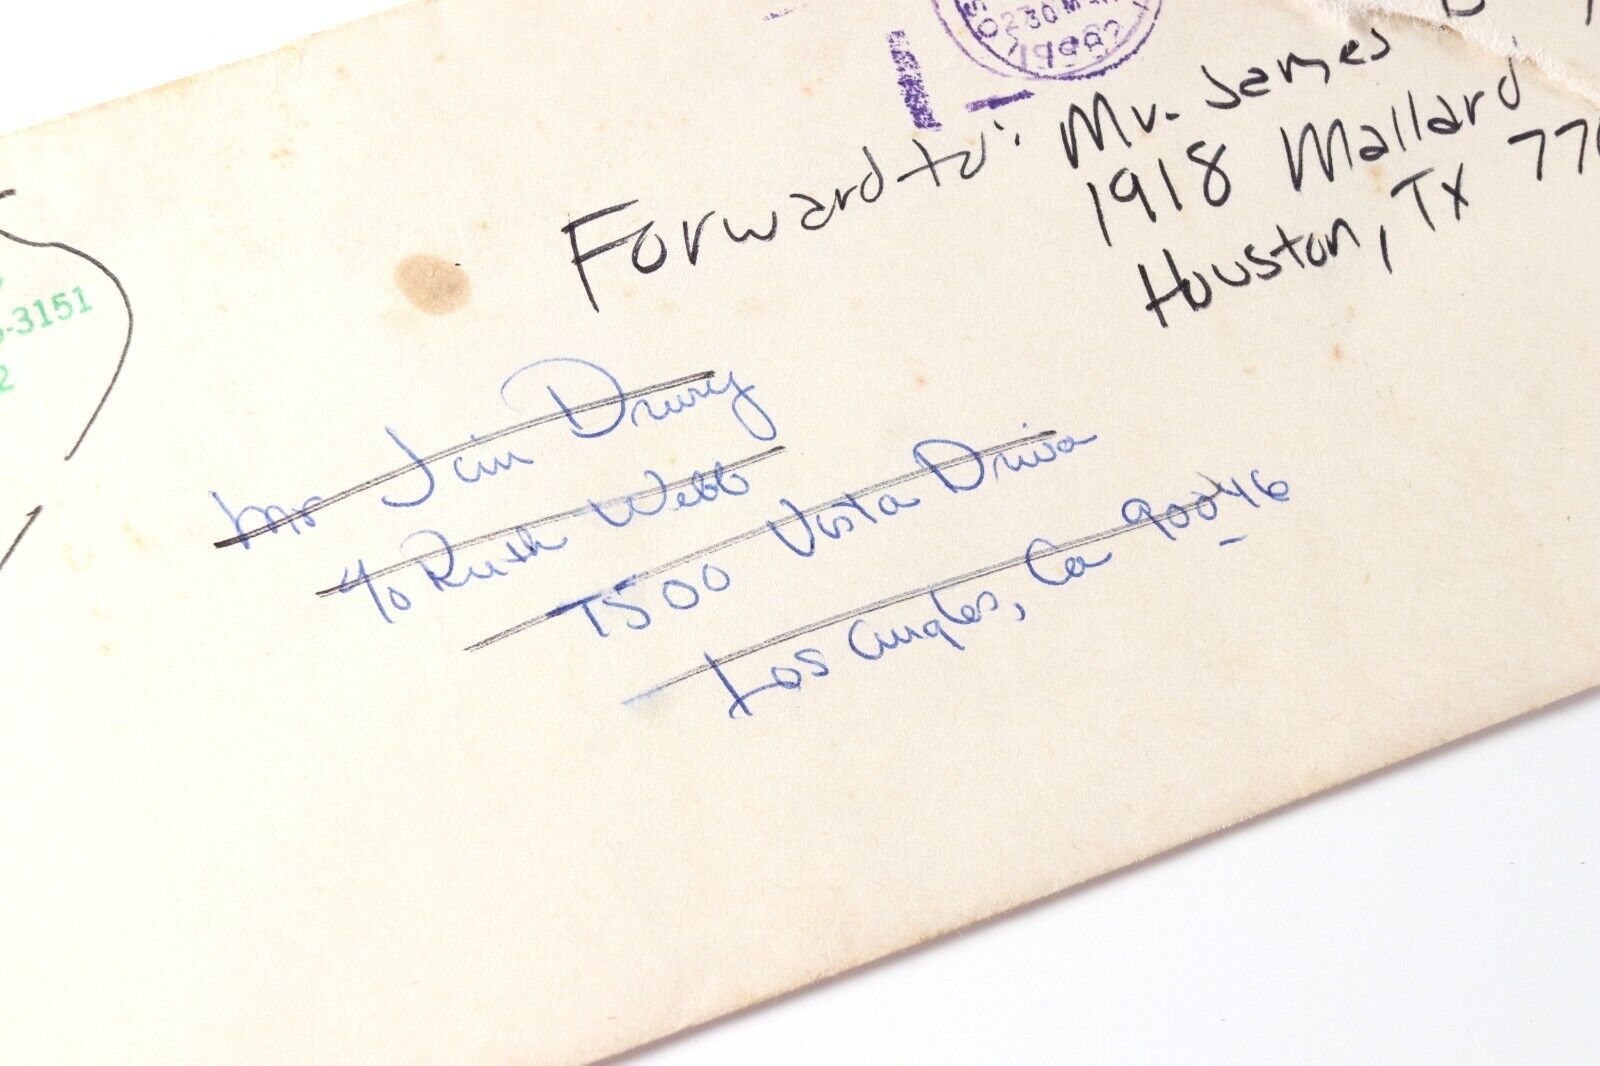 230
1982
Forward to: Mr. James D
1918 Mallard
Houston, TX 770
-3151
2
Mr Jim Drury
c/o Ruth Webb
7500 Vista Drive
Los Angles, Ca 90046